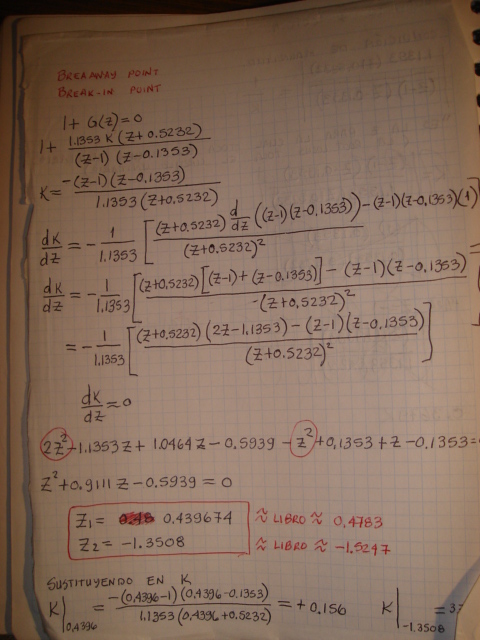 BREAKAWAY POINT
BREAK-IN POINT
1 + G(z) = 0
1 + 1.1353 K (z+0.5232) / (z-1) (z-0.1353)
K = -(z-1)(z-0.1353) / 1.1353 (z+0.5232)
dK/dz = - 1/1.1353 [ (z+0,5232) d/dz ((z-1)(z-0.1353)) - (z-1)(z-0,1353)(1) / (z+0.5232)²
dK/dz = - 1/1.1353 [ (z+0.5232) [(z-1) + (z-0.1353)] - (z-1)(z-0.1353) / -(z+0,5232)²
= - 1/1.1353 [ (z+0,5232) (2z-1.1353) - (z-1)(z-0.1353) / (z+0.5232)² ]
dK/dz = 0
2z² - 1.1353z + 1.0464z - 0.5939 - z² + 0.1353 + z - 0.1353 =
z² + 0.9111z - 0.5939 = 0
z1 = 0.439674 ≈ LIBRO ≈ 0,4783
z2 = -1.3508 ≈ LIBRO ≈ -1.5247
SUSTITUYENDO EN K
K|0,4396 = -(0,4396-1)(0,4396-0.1353) / 1.1353 (0,4396+0.5232) = +0.156 K|-1.3508 = 3